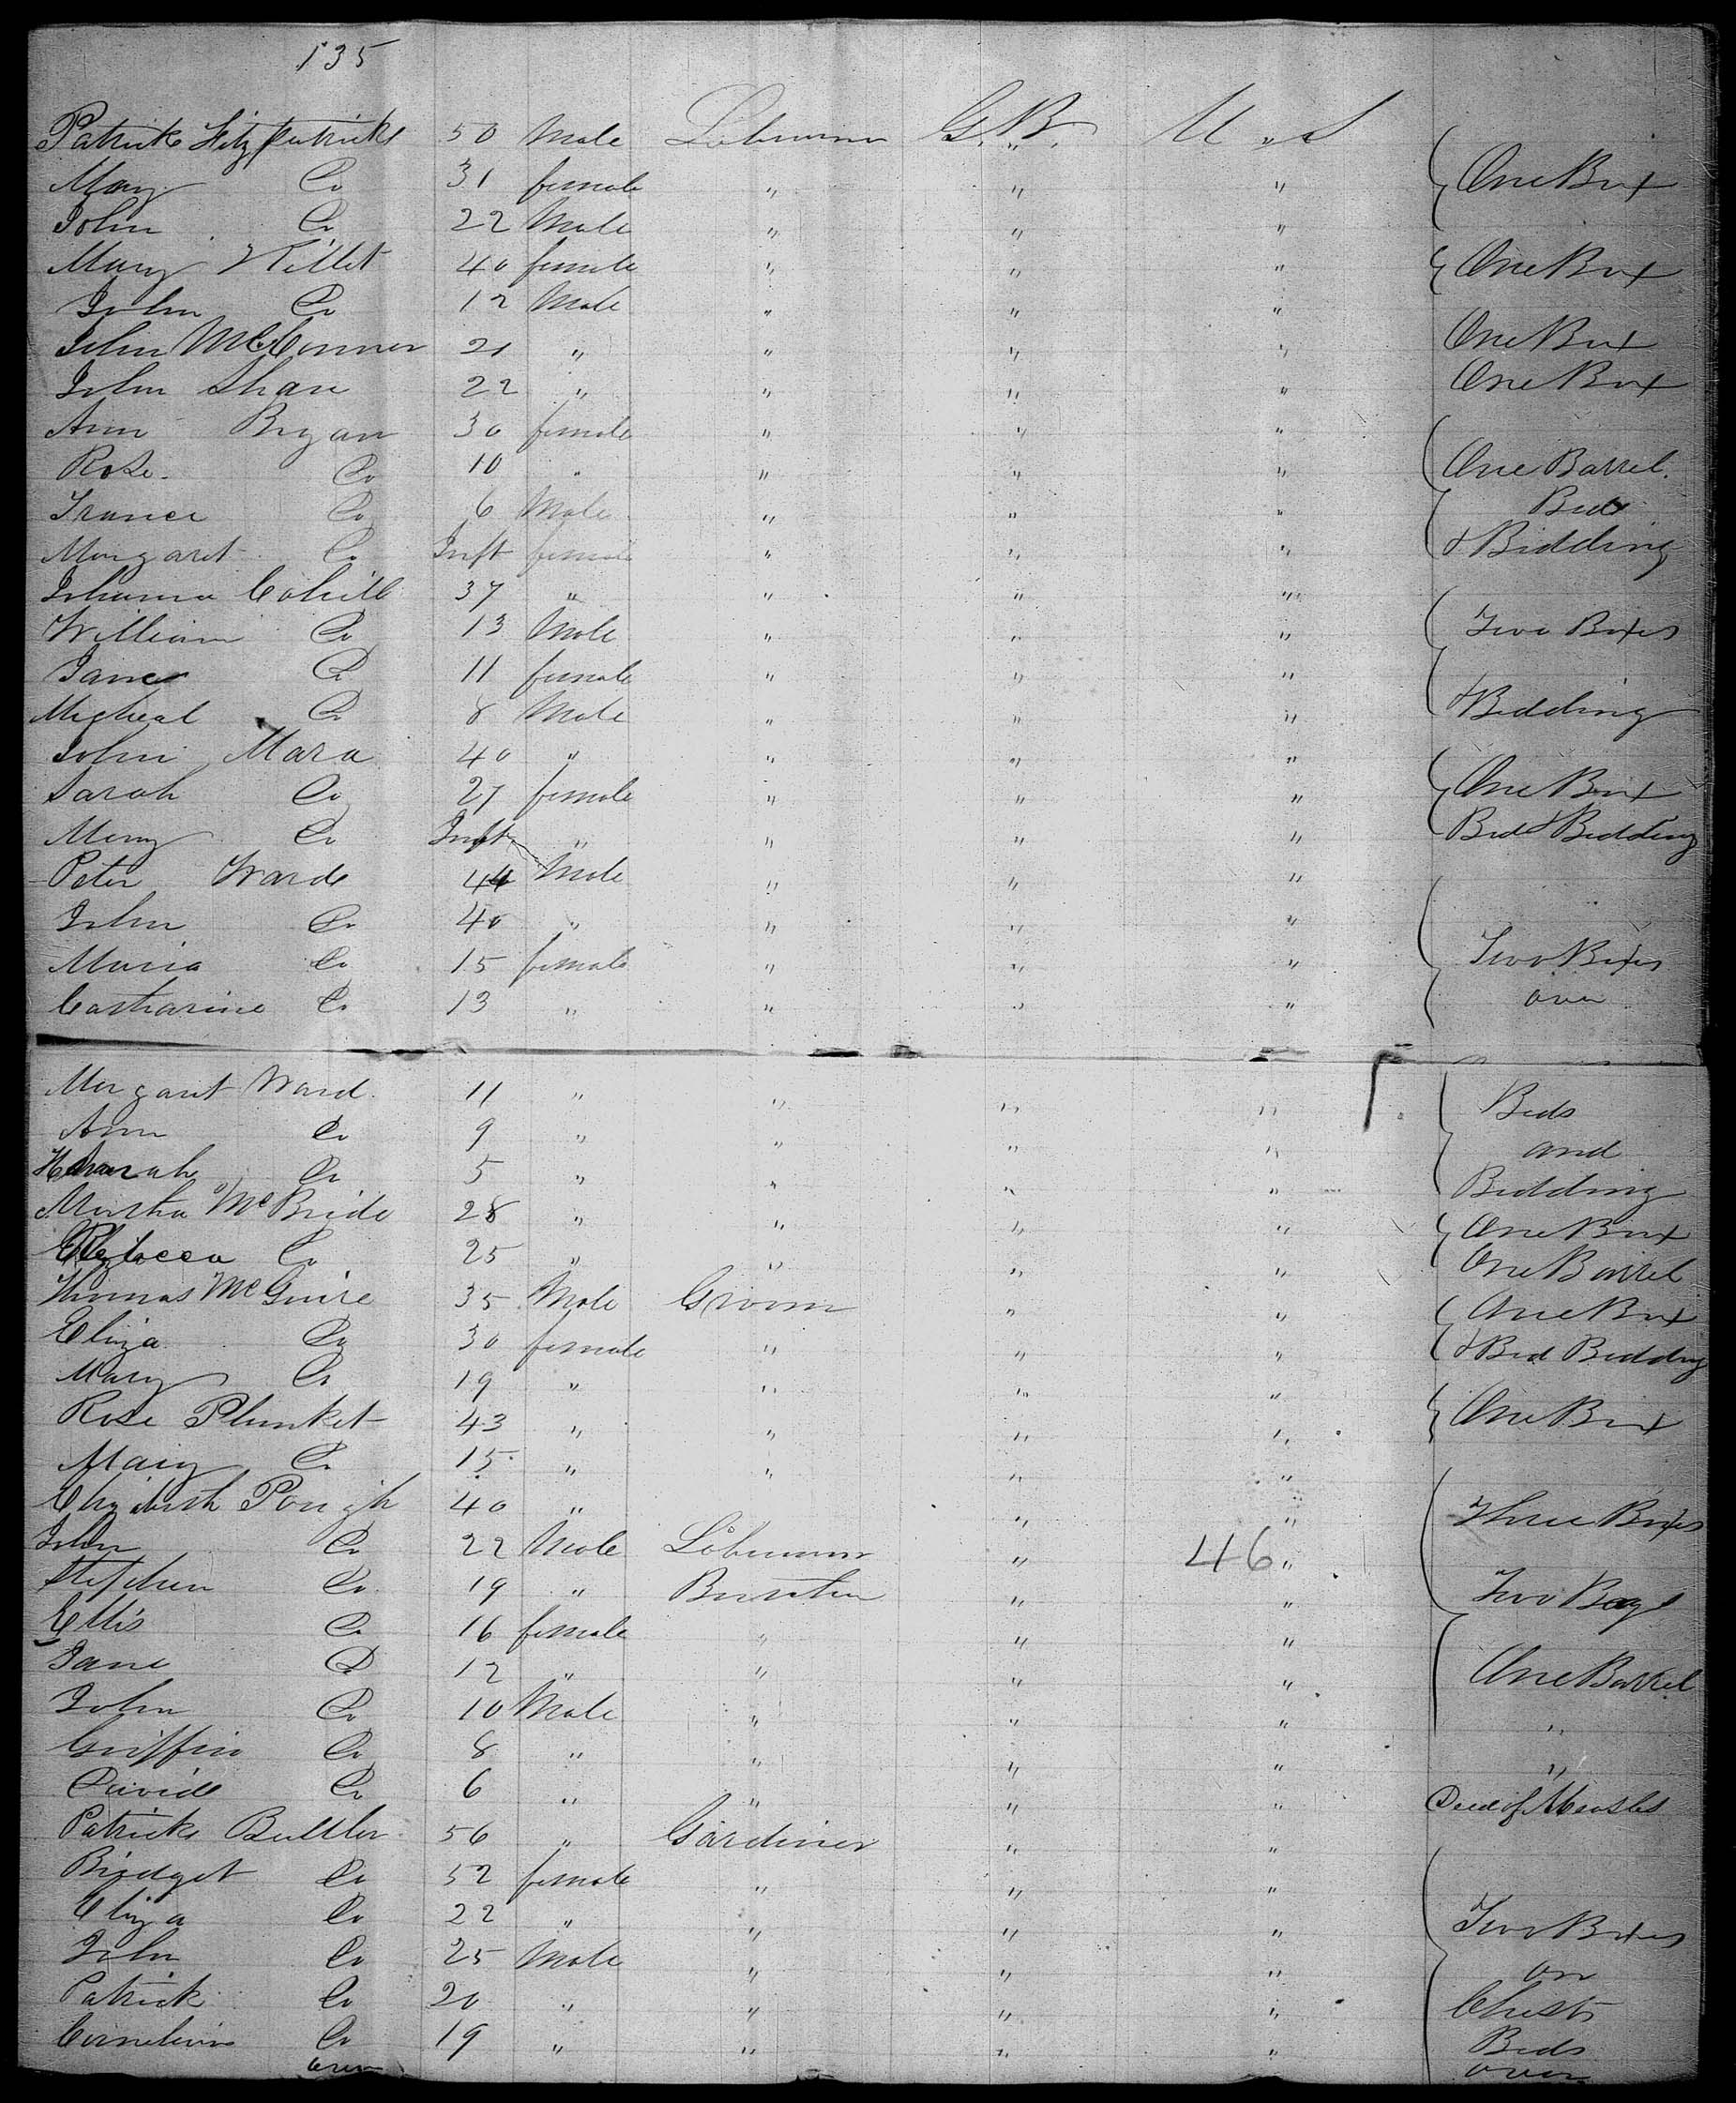 135
Patrick Fitzpatrick 50 Male Labourer G.B. U " S
Mary Do 31 female " " " One Box
John Do 22 Male " " "
Mary Willet 40 female " " " One Box
John Do 12 Male " " "
John McConner 21 " " " " One Box
John Shan 22 " " " " One Box
Ann Bryan 30 female " " "
Rose Do 10 " " " " One Barrel
France Do 6 Male " " " Beds
Margaret Do Inft female " " " & Bidding
Johanna Cahill 37 " " " "
William Do 13 Male " " " Two Boxes
Jane Do 11 female " " "
Micheal Do 8 Male " " " & Bidding
John Mara 40 " " " "
Sarah Do 27 female " " " One Box
Mary Do Inft " " " " Bed & Bidding
Peter Ward 44 Male " " "
John Do 40 " " " "
Maria Do 15 female " " " Two Boxes
Catharine Do 13 " " " " over
Margaret Ward 11 " " " " Beds
Ann Do 9 " " " " and
Hannah Do 5 " " " " Bidding
Martha McBride 28 " " " " One Box
Rebecca Do 25 " " " " One Barrel
Thomas McGuire 35 Male Groom " " One Box
Eliza Do 30 female " " " & Bed Bidding
Mary Do 19 " " " "
Rose Plunket 43 " " " " One Box
Mary Do 15 " " " "
Elizabeth Pough 40 " " " Three Boxes
John Do 22 Male Labourer " 46 "
Stephen Do 19 " " " Two Bags
Ellis Do 16 female " " "
Jane Do 12 " " " " One Barrel
John Do 10 Male " " " "
Griffin Do 8 " " " " "
David Do 6 " " " " Died of Measles
Patrick Buttler 56 " Gardiner " "
Bridget Do 52 female " " "
Eliza Do 22 " " " " Two Boxes
John Do 25 Male " " "
Patrick Do 20 " " " " Chest
Cornelius Do 19 " " " " Beds
over over